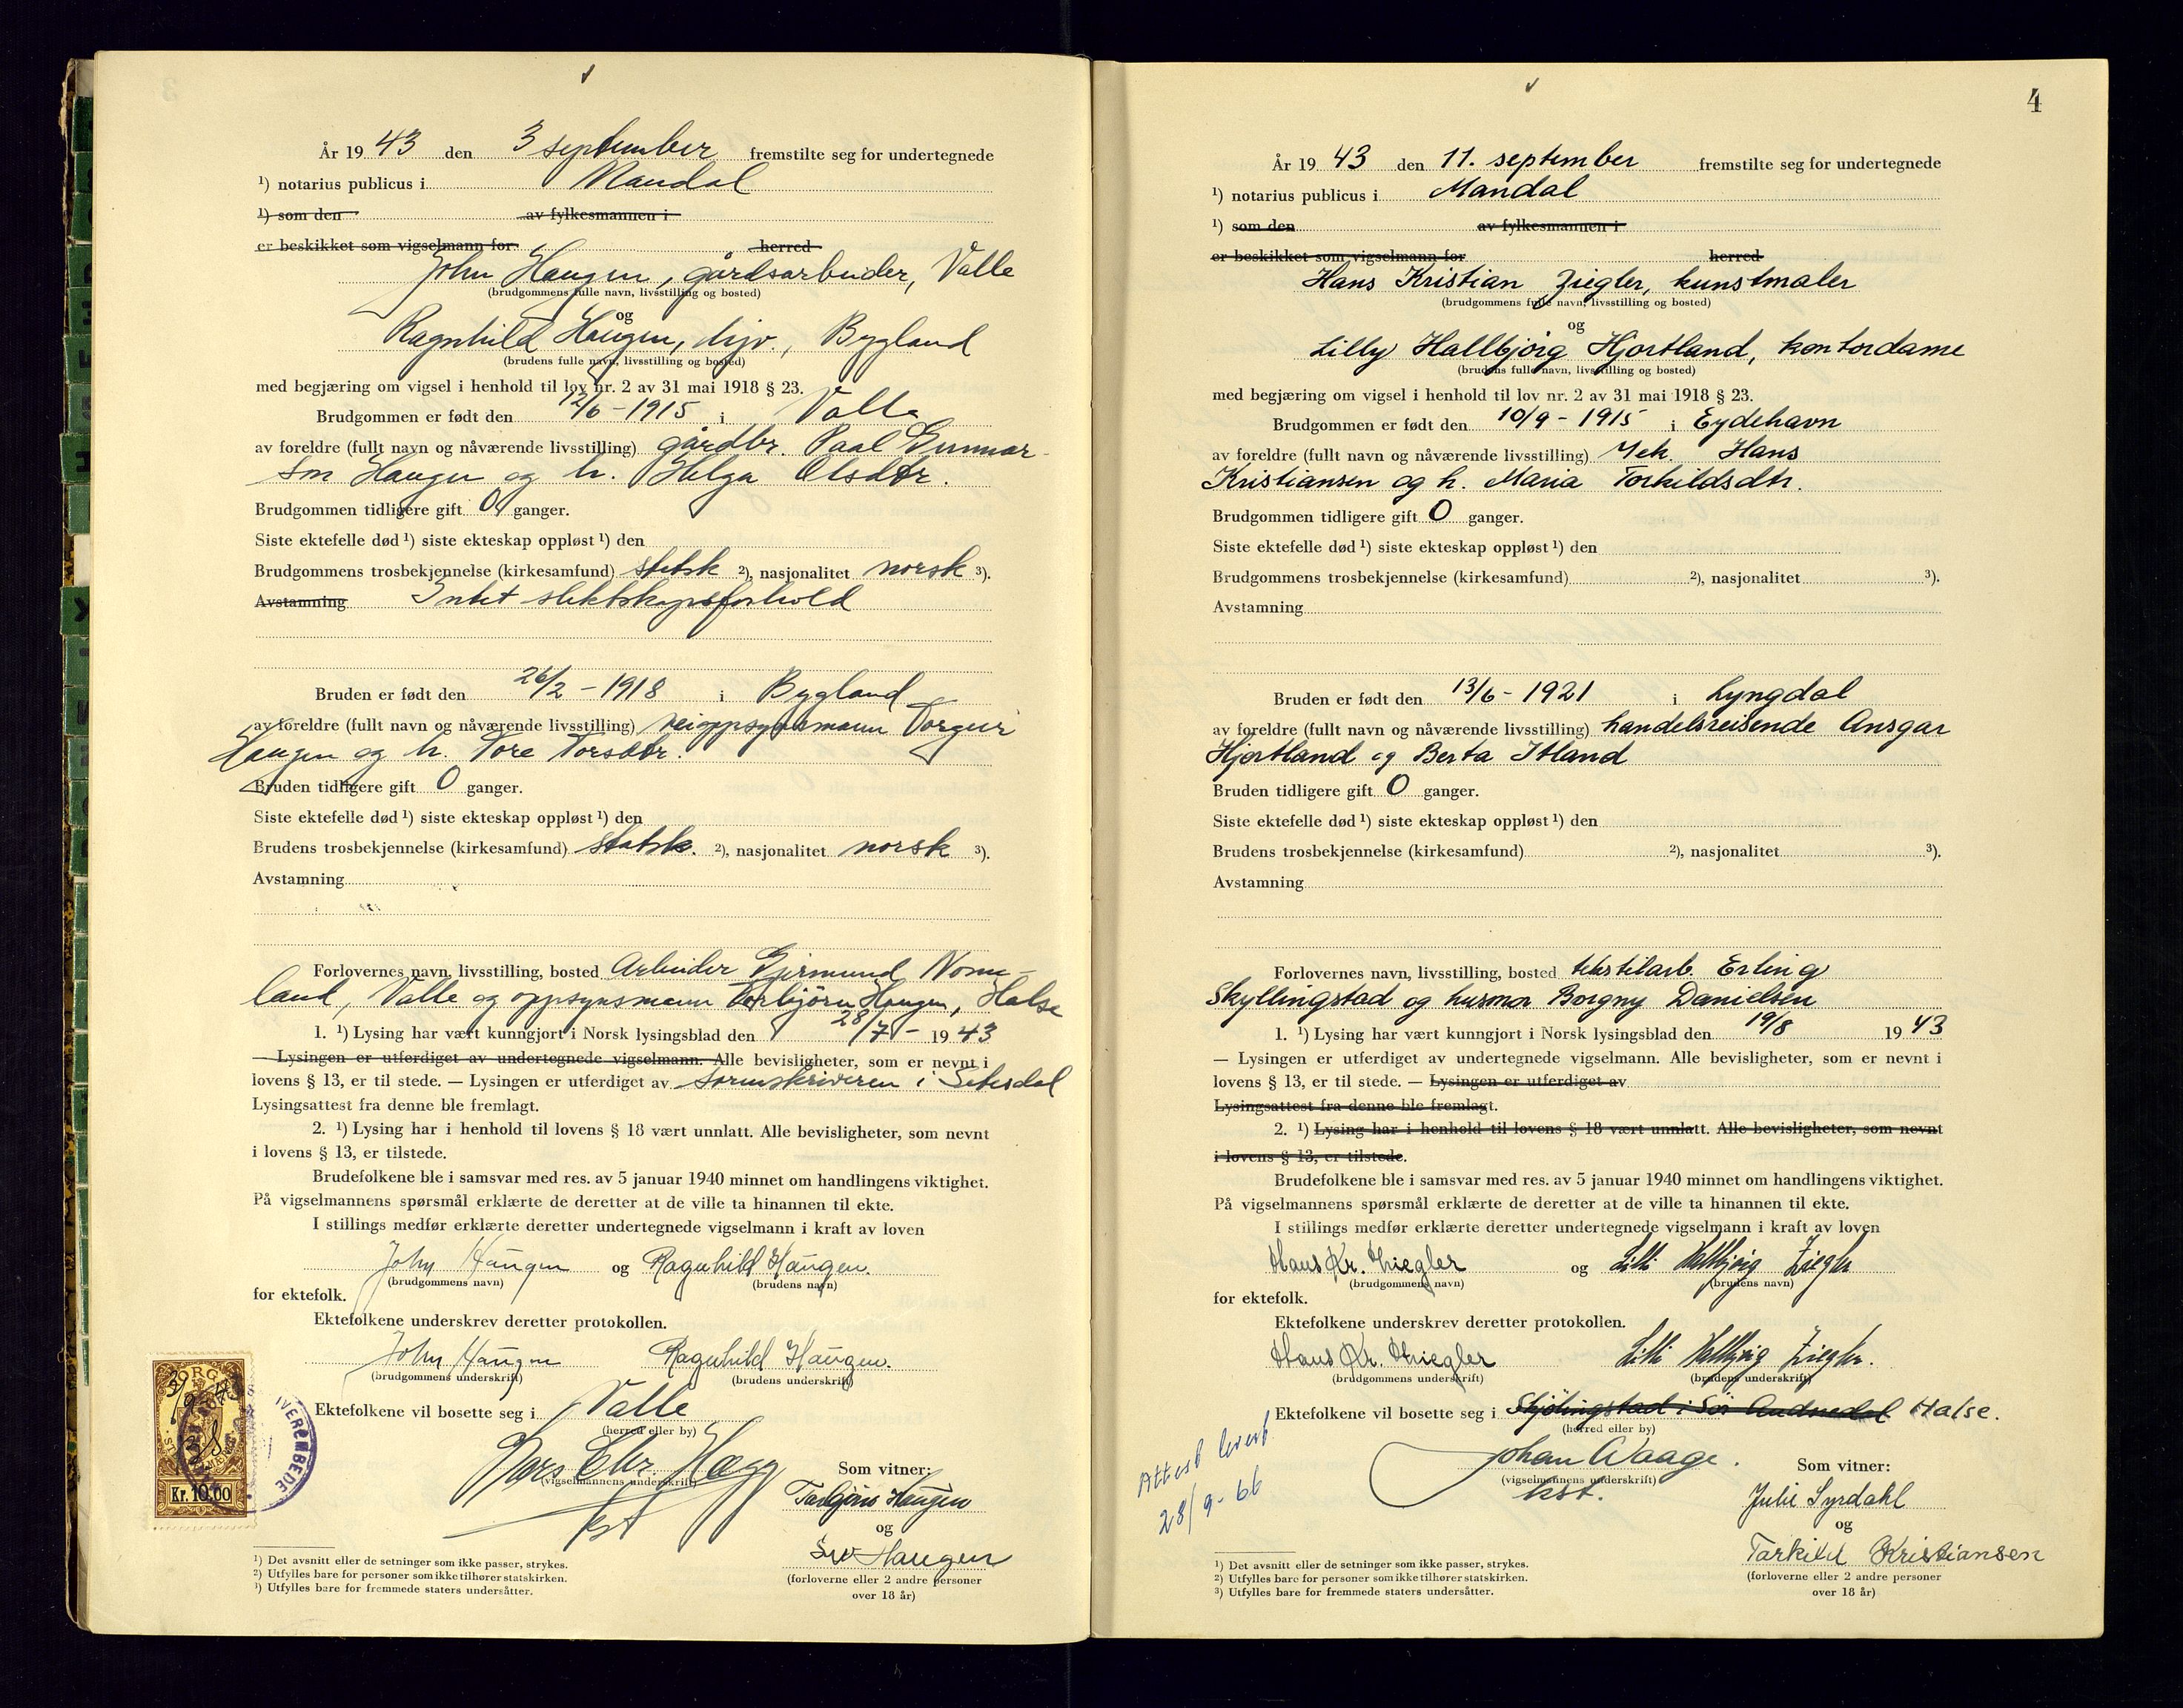 År 19 43 den 3 september fremstilte seg for undertegnede
¹) notarius publicus i Mandal
¹) som den av fylkesmannen i
er beskikket som vigselmann for herred
John Haugen, gårdsarbeider, Valle
(brudgommens fulle navn, livsstilling og bosted)
og
Ragnhild Haugen, hjv., Bygland
(brudens fulle navn, livsstilling og bosted)
med begjæring om vigsel i henhold til lov nr. 2 av 31 mai 1918 § 23.
Brudgommen er født den 12/6 - 1915 i Valle
av foreldre (fullt navn og nåværende livsstilling) gårdbr. Paal Gunnar-
sen Haugen og h. Helga Olsdtr.
Brudgommen tidligere gift 0 ganger.
Siste ektefelle død ¹) siste ekteskap oppløst ¹) den
Brudgommens trosbekjennelse (kirkesamfund) statsk ²), nasjonalitet norsk ³).
Avstamning Intet slektskapsforhold
Bruden er født den 26/2 - 1918 i Bygland
av foreldre (fullt navn og nåværende livsstilling) veioppsynsmann Torgeir
Haugen og h. Tore Torsdtr.
Bruden tidligere gift 0 ganger.
Siste ektefelle død ¹) siste ekteskap oppløst ¹) den
Brudens trosbekjennelse (kirkesamfund) statsk. ²), nasjonalitet norsk ³).
Avstamning
Forlovernes navn, livsstilling, bosted Arbeider Gjermund Nome-
land, Valle og oppsynsmann Torbjörn Haugen, Halse
1. ¹) Lysing har vært kunngjort i Norsk lysingsblad den 28/7 - 19 43
— Lysingen er utferdiget av undertegnede vigselmann. Alle bevisligheter, som er nevnt i
lovens § 13, er til stede. — Lysingen er utferdiget av sorenskriveren i Setesdal
Lysingsattest fra denne ble fremlagt.
2. ¹) Lysing har i henhold til lovens § 18 vært unnlatt. Alle bevisligheter, som nevnt
i lovens § 13, er tilstede.
Brudefolkene ble i samsvar med res. av 5 januar 1940 minnet om handlingens viktighet.
På vigselmannens spørsmål erklærte de deretter at de ville ta hinannen til ekte.
I stillings medfør erklærte deretter undertegnede vigselmann i kraft av loven
John Haugen og Ragnhild Haugen.
(brudgommens navn) (brudens navn)
for ektefolk.
Ektefolkene underskrev deretter protokollen.
John Haugen Ragnhild Haugen.
(brudgommens underskrift) (brudens underskrift)
Ektefolkene vil bosette seg i Valle
(herred eller by)
Chr. Hægg
(vigselmannens underskrift)
kst
Som vitner:
Torbjörn Haugen
og
Haugen
(forloverne eller 2 andre personer
over 18 år)
NORGE
Kr. 10.00
IVERENBEDE
¹) Det avsnitt eller de setninger som ikke passer, strykes.
²) Utfylles bare for personer som ikke tilhører statskirken.
³) Utfylles bare for fremmede staters undersåtter.
4
År 19 43 den 11. september fremstilte seg for undertegnede
¹) notarius publicus i Mandal
¹) som den av fylkesmannen i
er beskikket som vigselmann for herred
Hans Kristian Ziegler, kunstmaler
(brudgommens fulle navn, livsstilling og bosted)
og
Lilly Hallbjörg Hjortland, kontordame
(brudens fulle navn, livsstilling og bosted)
med begjæring om vigsel i henhold til lov nr. 2 av 31 mai 1918 § 23.
Brudgommen er født den 10/9 - 1915 i Eydehavn
av foreldre (fullt navn og nåværende livsstilling) Mek. Hans
Kristiansen og h. Maria Torkildsdtr.
Brudgommen tidligere gift 0 ganger.
Siste ektefelle død ¹) siste ekteskap oppløst ¹) den
Brudgommens trosbekjennelse (kirkesamfund) ²), nasjonalitet ³).
Avstamning
Bruden er født den 13/6 - 1921 i Lyngdal
av foreldre (fullt navn og nåværende livsstilling) handelsreisende Ansgar
Hjortland og Berta Itland
Bruden tidligere gift 0 ganger.
Siste ektefelle død ¹) siste ekteskap oppløst ¹) den
Brudens trosbekjennelse (kirkesamfund) ²), nasjonalitet ³).
Avstamning
Forlovernes navn, livsstilling, bosted tekstilarb. Erling
Skyllingstad og husmor Borgny Danielsen
1. ¹) Lysing har vært kunngjort i Norsk lysingsblad den 19/8 19 43
— Lysingen er utferdiget av undertegnede vigselmann. Alle bevisligheter, som er nevnt i
lovens § 13, er til stede. — Lysingen er utferdiget av
Lysingsattest fra denne ble fremlagt.
2. ¹) Lysing har i henhold til lovens § 18 vært unnlatt. Alle bevisligheter, som nevnt
i lovens § 13, er tilstede.
Brudefolkene ble i samsvar med res. av 5 januar 1940 minnet om handlingens viktighet.
På vigselmannens spørsmål erklærte de deretter at de ville ta hinannen til ekte.
I stillings medfør erklærte deretter undertegnede vigselmann i kraft av loven
Hans Kr. Ziegler og Lilli Halbjörg Ziegler
(brudgommens navn) (brudens navn)
for ektefolk.
Ektefolkene underskrev deretter protokollen.
Hans Kr. Ziegler Lilli Halbjörg Ziegler.
(brudgommens underskrift) (brudens underskrift)
Ektefolkene vil bosette seg i Skjölingstad i Sör Audnedal Halse.
(herred eller by)
Johan Waage.
(vigselmannens underskrift)
kst.
Attest levert
28/9-66
Som vitner:
Julie Syrdahl
og
Torkild Kristiansen
(forloverne eller 2 andre personer
over 18 år)
¹) Det avsnitt eller de setninger som ikke passer, strykes.
²) Utfylles bare for personer som ikke tilhører statskirken.
³) Utfylles bare for fremmede staters undersåtter.